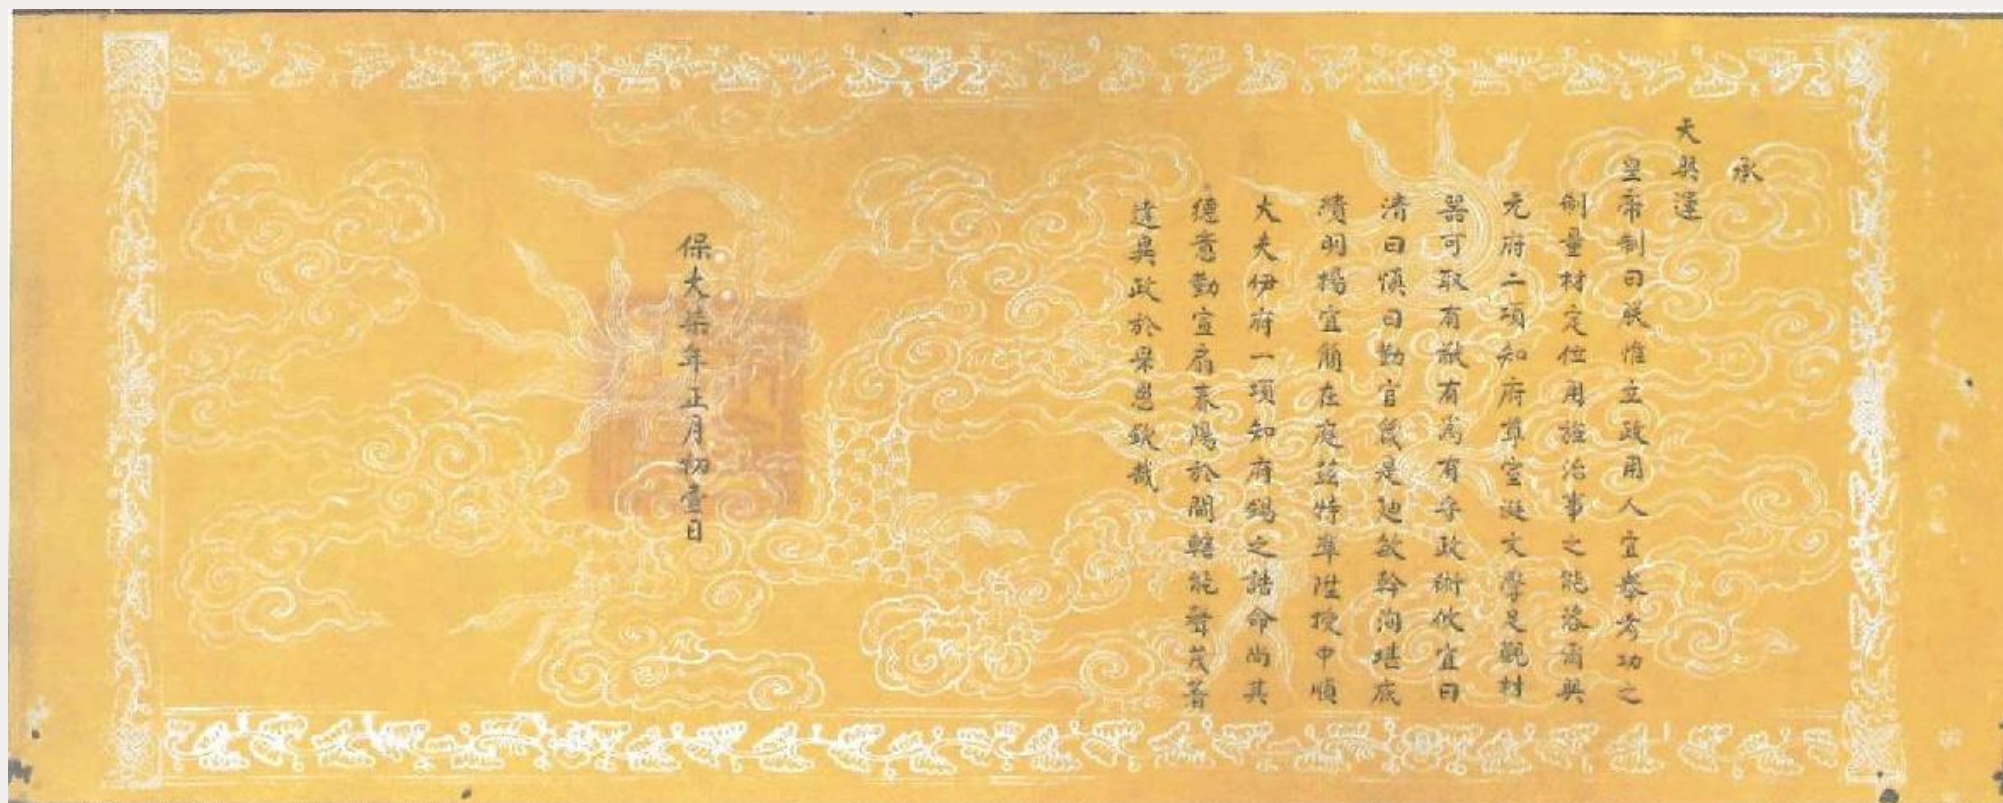 承
天興運
皇帝制曰朕惟立政用人宜奉考功之
制量材定位用旌治事之能咨爾興
元府二項知府章室遊文學足觀材
器可取有猷有為有守政術攸宜曰
清曰慎曰勤官箴是迪敏幹洵堪底
績明揚宜簡在庭茲特準陞授中順
大夫伊府一項知府錫之誥命尚其
德意勤宣扇春陽於閭轄能聲茂著
達輿政於宸恩欽哉
保大柒年正月初壹日